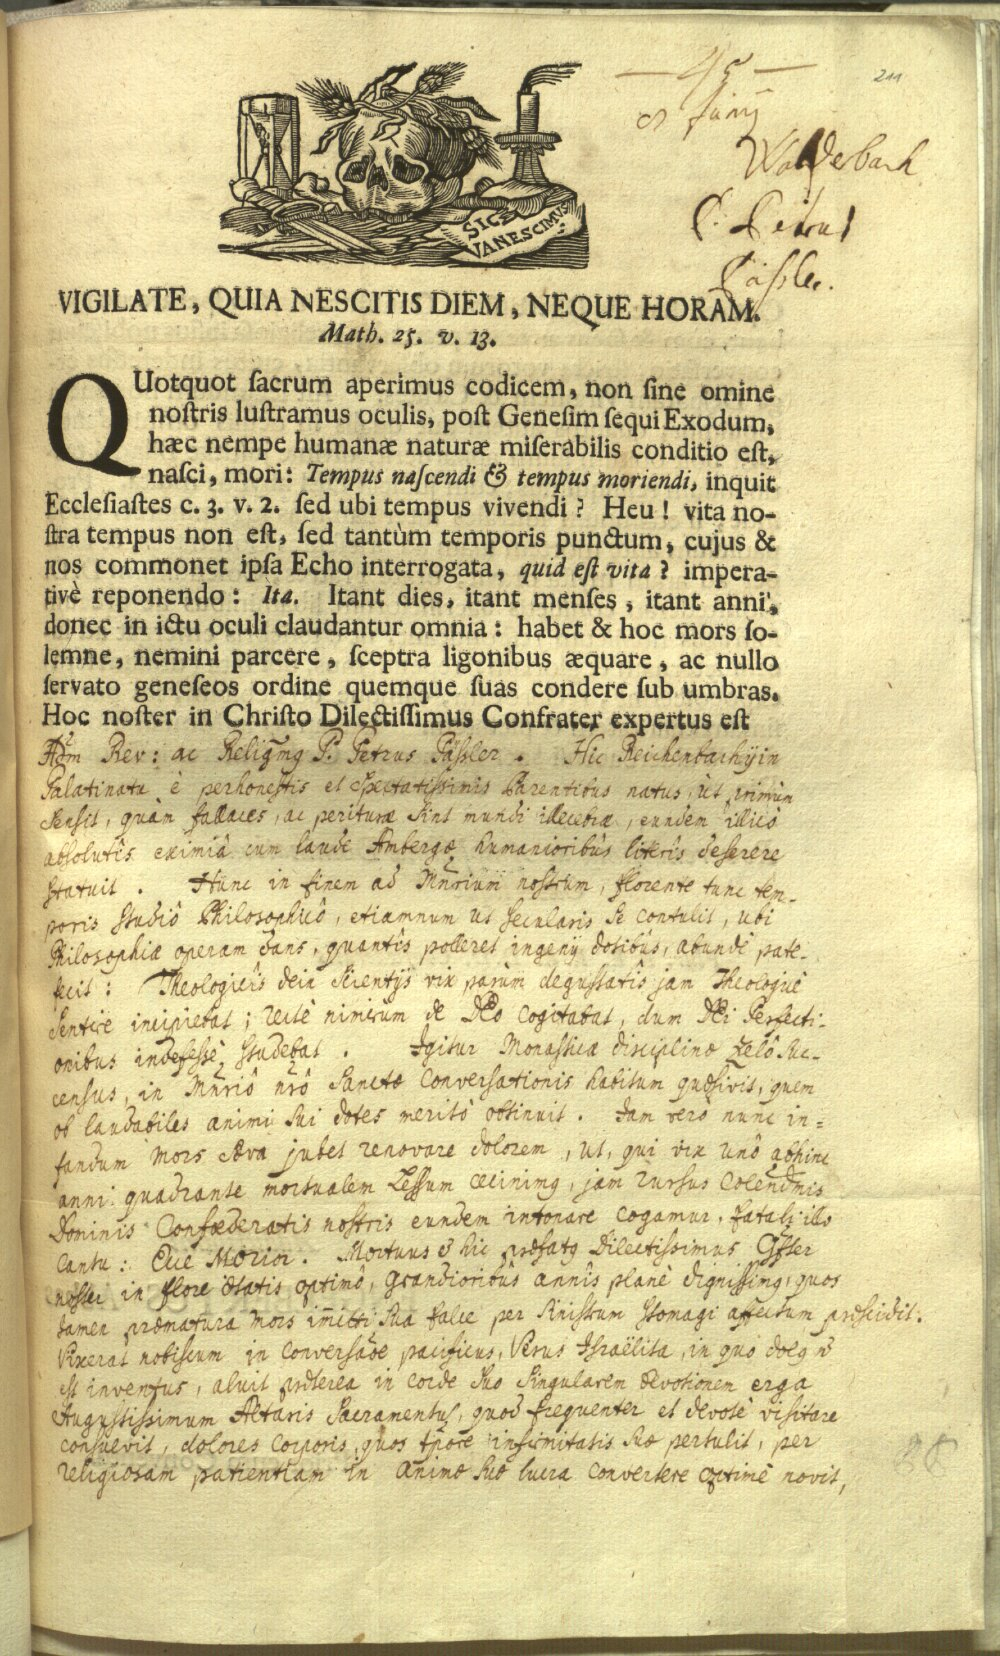 — 45 —
211
8 Junij
Walderbach
P. Petrus
Päßler.
SIC
VANESCIMUS
VIGILATE, QUIA NESCITIS DIEM, NEQUE HORAM.
Math. 25. v. 13.
QUotquot ſacrum aperimus codicem, non ſine omine
noſtris luſtramus oculis, poſt Geneſim ſequi Exodum,
hæc nempe humanæ naturæ miſerabilis conditio eſt,
naſci, mori: Tempus naſcendi & tempus moriendi, inquit
Eccleſiaſtes c. 3. v. 2. ſed ubi tempus vivendi? Heu! vita no-
ſtra tempus non eſt, ſed tantùm temporis punctum, cujus &
nos commonet ipſa Echo interrogata, quid eſt vita? impera-
tivè reponendo: Ita. Itant dies, itant menſes, itant anni,
donec in ictu oculi claudantur omnia: habet & hoc mors ſo-
lemne, nemini parcere, ſceptra ligonibus æquare, ac nullo
ſervato geneſeos ordine quemque ſuas condere ſub umbras.
Hoc noſter in Chriſto Dilectiſſimus Confrater expertus eſt
Adm Rev: ac Religmg P. Petrus Päßler. Hic Reichenbachij in
Palatinatu è perhonestis et spectatissimis Parentibus natus, ut primùm
sensit, quàm fallaces, ac perituræ sint mundi illecebræ, eundem illicò
absolutîs eximiâ cum laude Ambergæ humanioribus literîs deserere
statuit. Hunc in finem ad Mñrium nostrum, florente tunc tem-
poris studiô Philosophicô, etiamnum ut secularis se contulit, ubi
Philosophiæ operam dans, quantîs polleret ingenij dotibûs, abundè pate-
fecit: Theologicîs dein scientijs vix parùm degustatîs jam Theologicè
sentire incipiebat; rectè nimirum de DEo cogitabat, dum DEi Perfecti-
onibus indefessè studebat. Igitur Monasticæ disciplinæ zelô suc-
census, in Mñriô nrô Sanctæ Conversationis habitum quæsivit, quem
ob laudabiles animi sui dotes meritò obtinuit. Jam verò nunc in=
fandum Mors sæva jubet renovare dolorem, ut, qui vix unô abhinc
anni quadrante mortualem Lessum cecinimg, jam rursus Colendmis
Dominis Confœderatis nostris eundem intonare cogamur, fatali illo
cantu: Ecce Morior. Mortuus & hic præfatg Dilectissimus
noster in flore ætatis optimô, grandioribûs annîs planè dignissimg, quos
tamen præmatura Mors immiti sua falce per sinistrum stomagi affectum præscidit.
Vixerat nobiscum in conversaõe pacificus, Verus Israëlita, in quo
est inventus, aluit præterea in corde suo singularem devotionem erga
Augustissimum Altaris Sacramentum, quod frequenter et devotè visitare
consuevit, dolores corporis, quos tpõre infirmitatis suæ pertulit, per
religiosam patientiam in animæ suæ lucra convertere optimè novit,